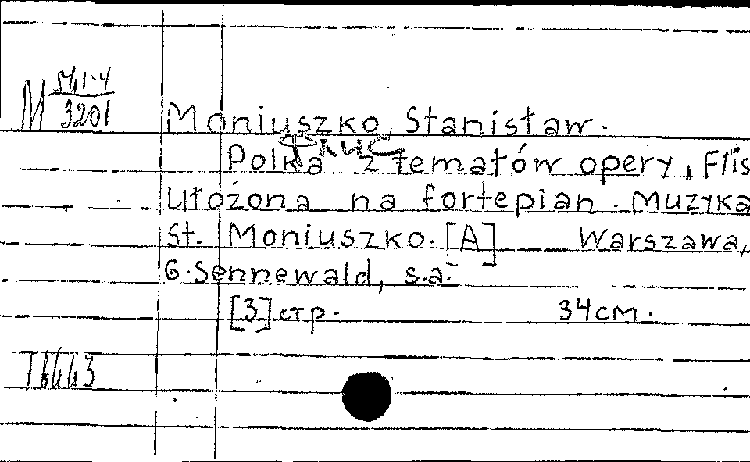 М 541-4
3201
Moniuszko, Stanisław.
Polka z tematów opery „Flis
ułożona na fortepian. Muzyka
St. Moniuszko. [A] Warszawa,
G. Sennewald, s.a.
[3] стр. 34 см.